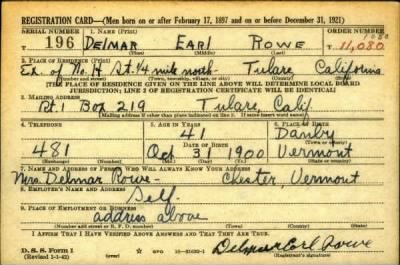 REGISTRATION CARD—(Men born on or after February 17, 1897 and on or before December 31, 1921)
SERIAL NUMBER 1. NAME (Print) ORDER NUMBER
196 DELMAR EARL ROWE 11,080
(First) (Middle) (Last)
2. PLACE OF RESIDENCE (Print)
Ex. of No. H St. 1/4 mile north Tulare California
(Number and street) (Town, township, village, or city) (County) (State)
[THE PLACE OF RESIDENCE GIVEN ON THE LINE ABOVE WILL DETERMINE LOCAL BOARD
JURISDICTION; LINE 2 OF REGISTRATION CERTIFICATE WILL BE IDENTICAL]
3. MAILING ADDRESS
Rt. 1 Box 219 Tulare, Calif.
[Mailing address if other than place indicated on line 2. If same insert word same]
4. TELEPHONE 5. AGE IN YEARS 6. PLACE OF BIRTH
41 Danby
DATE OF BIRTH (Town or county)
481 Oct 31 1900 Vermont
(Exchange) (Number) (Mo.) (Day) (Yr.) (State or country)
7. NAME AND ADDRESS OF PERSON WHO WILL ALWAYS KNOW YOUR ADDRESS
Mrs. Delmar Rowe - Chester, Vermont
8. EMPLOYER'S NAME AND ADDRESS
Self.
9. PLACE OF EMPLOYMENT OR BUSINESS
address above
(Number and street or R. F. D. number) (Town) (County) (State)
I AFFIRM THAT I HAVE VERIFIED ABOVE ANSWERS AND THAT THEY ARE TRUE.
D. S. S. Form 1 GPO 16—21630-1 Delmar Earl Rowe
(Revised 1-1-42) (over) (Registrant's signature)